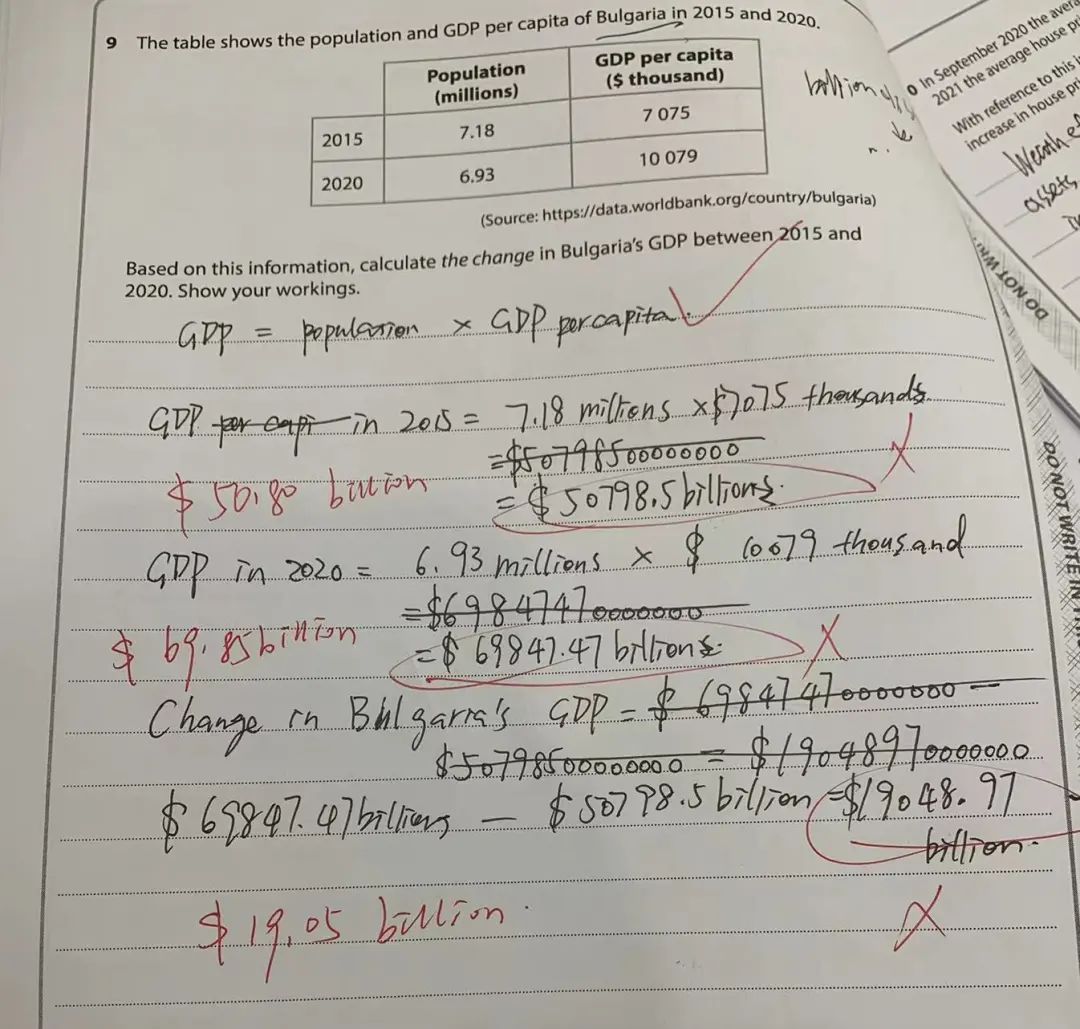 9 The table shows the population and GDP per capita of Bulgaria in 2015 and 2020.
Population (millions) GDP per capita ($ thousand)
2015 7.18 7 075
2020 6.93 10 079
(Source: https://data.worldbank.org/country/bulgaria)
Based on this information, calculate the change in Bulgaria's GDP between 2015 and
2020. Show your workings.
GDP = population × GDP per capita.
GDP per capi in 2015 = 7.18 millions ×$7075 thousands.
=$50798500000000
$ 50.80 billion
= $ 50798.5 billions.
GDP in 2020 = 6.93 millions × $ 10079 thousand
=$69847470000000
$ 69.85 billion
=$ 69847.47 billions.
Change in Bulgaria's GDP = $ 69847470000000 —
$50798500000000 = $19048970000000
$ 69847.47 billions — $50798.5 billion =$19048.97
billion.
$ 19.05 billion.
In September 2020 the
2021 the average house
With reference to this
increase in house
assets,
DO NOT
DO NOT WRITE IN